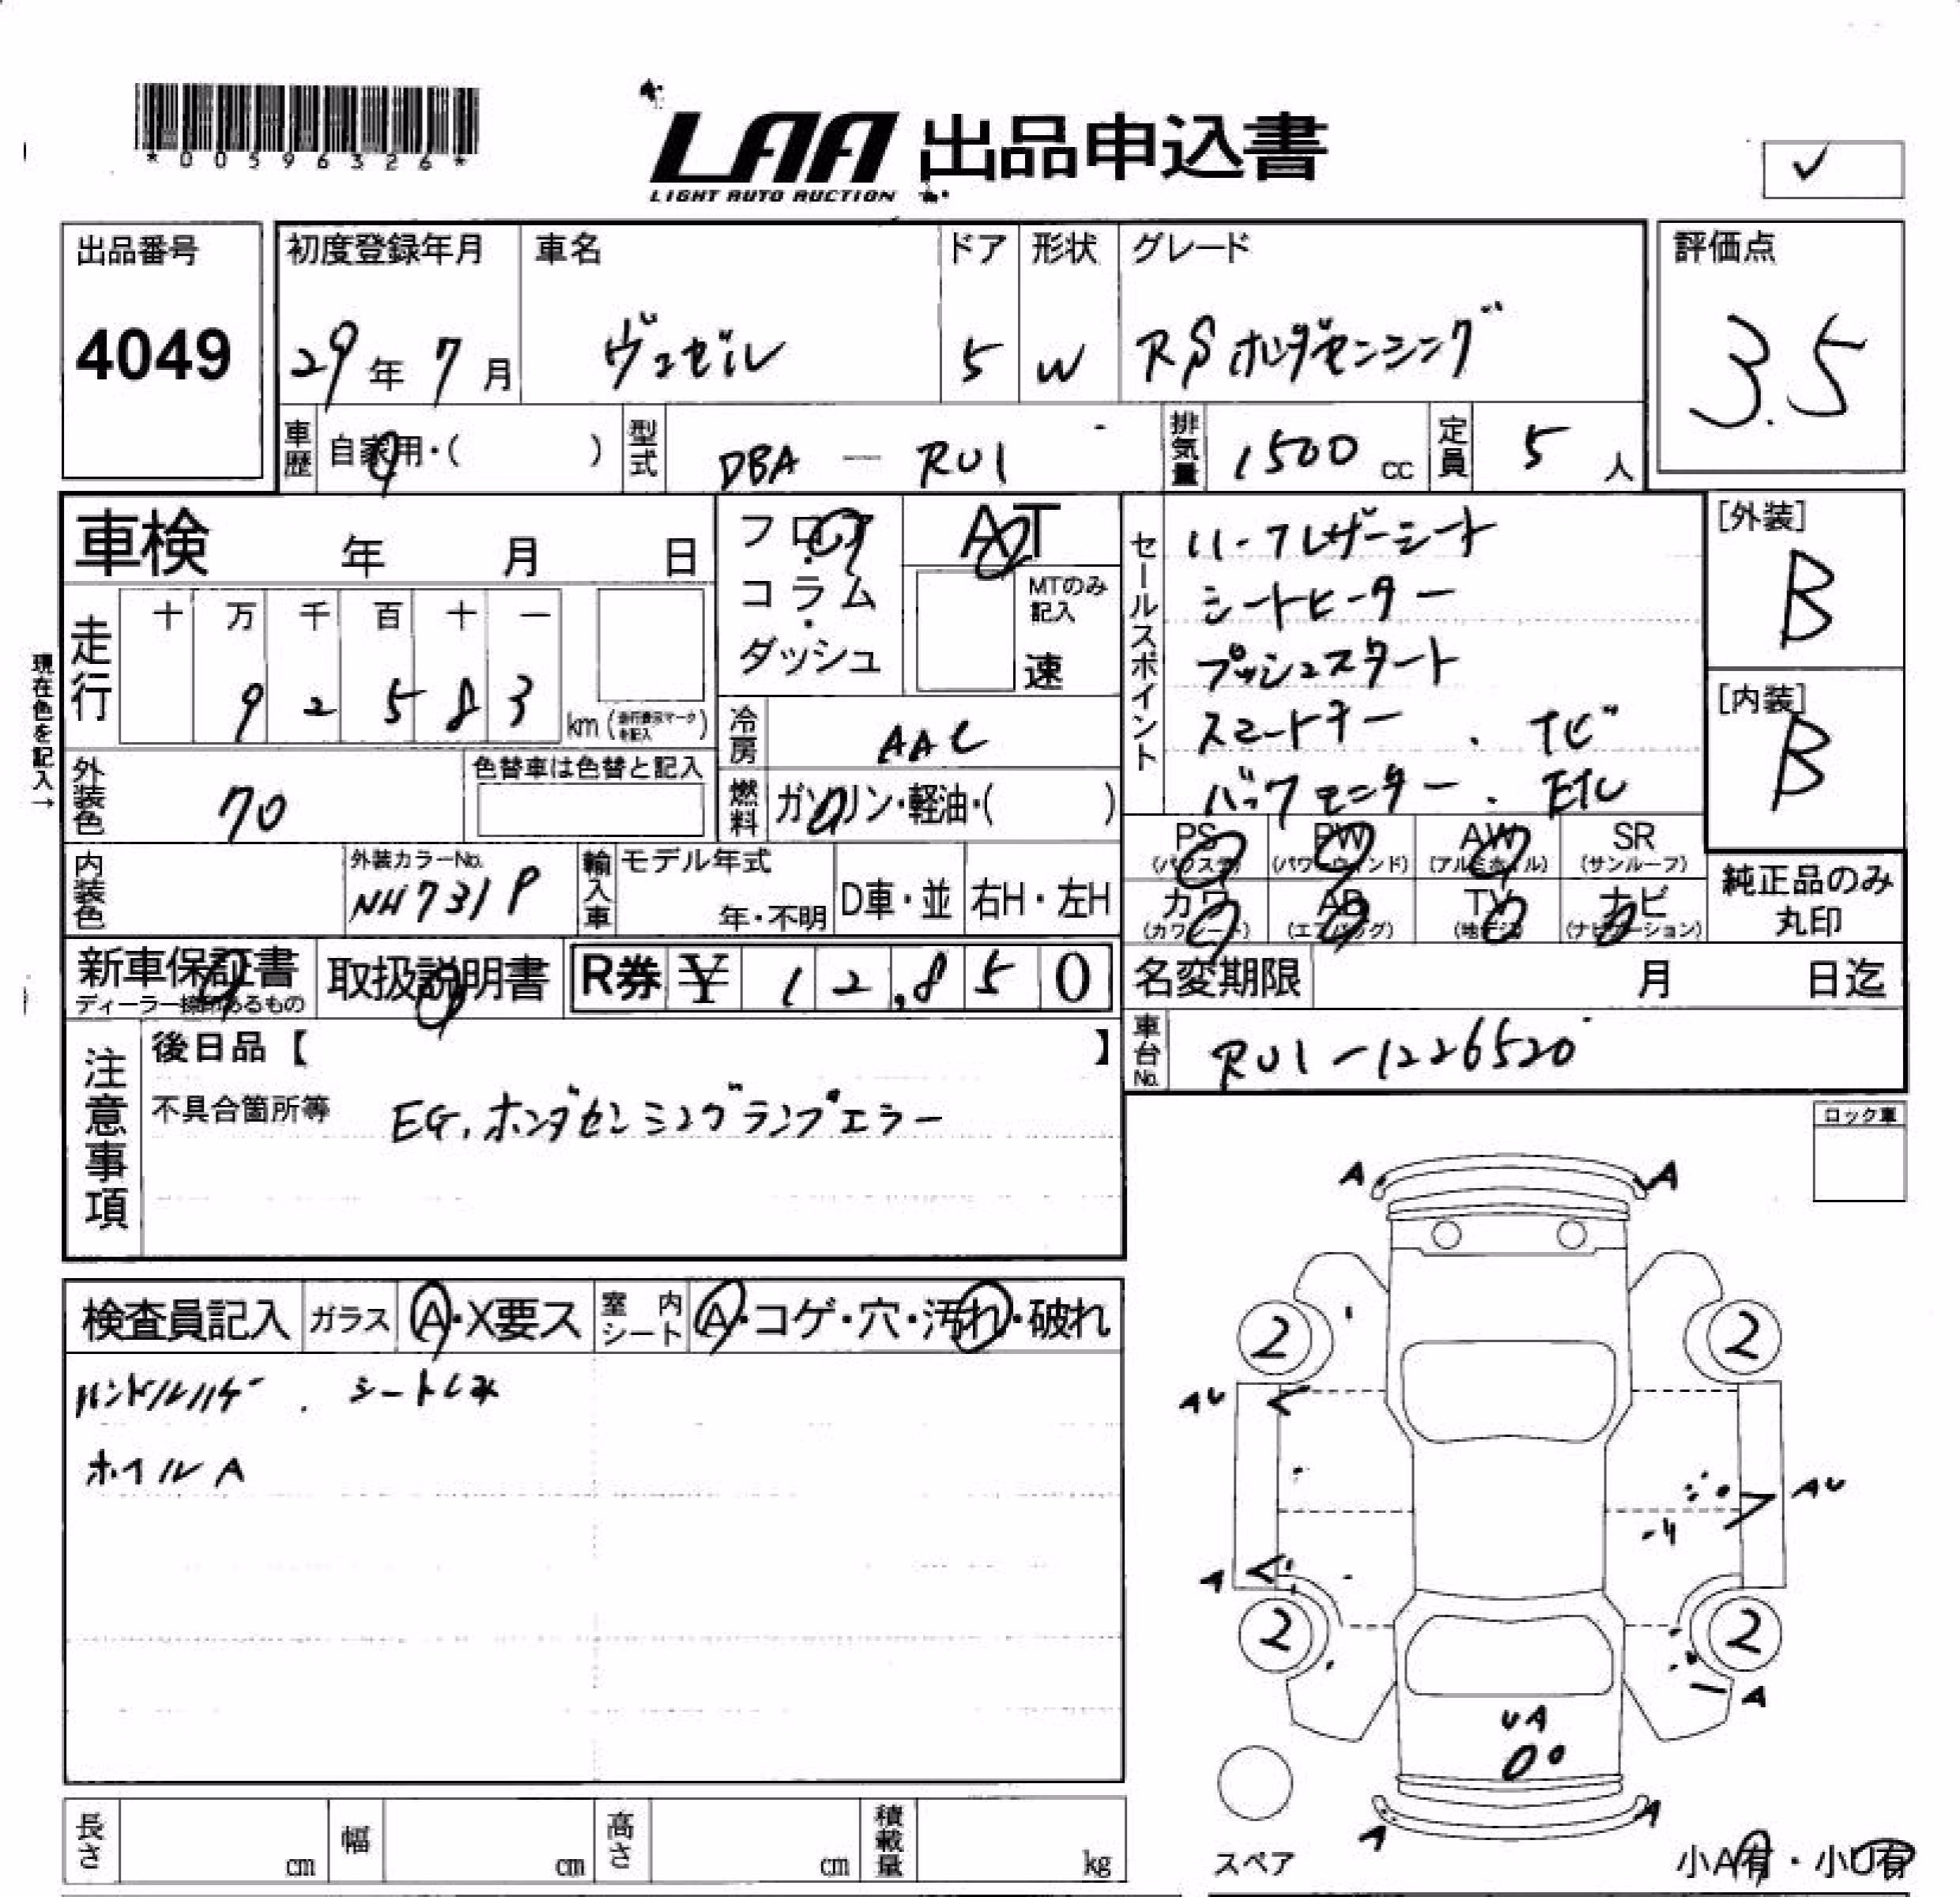 *00596326*
LAA 出品申込書
LIGHT AUTO AUCTION
✓
出品番号 4049
初度登録年月 29年 7月
車名 ヴェゼル
ドア 5
形状 W
グレード RSホンダセンシング
評価点 3.5
車歴 自家用・( )
型式 DBA - RU1
排気量 1500 cc
定員 5 人
車検 年 月 日
フロア・コラム・ダッシュ
AT
MTのみ記入
速
セールスポイント
ハーフレザーシート
シートヒーター
プッシュスタート
スマートキー . ナビ
バックモニター . ETC
[外装] B
[内装] B
現在色を記入→
走行 十 万 千 百 十 一
9 2 5 8 3 km (走行表示マークを記入)
冷房 AAC
燃料 ガソリン・軽油・( )
外装色 70
色替車は色替と記入
内装色
外装カラーNo. NH731P
輸入車 モデル年式 年・不明
D車・並
右H・左H
PS (パワステ)
PW (パワーウィンド)
AW (アルミホイル)
SR (サンルーフ)
カワ (カワシート)
AB (エアバッグ)
TV (地デジ)
ナビ (ナビゲーション)
純正品のみ丸印
新車保証書
ディーラー捺印あるもの
取扱説明書
R券 ¥ 12,850
名変期限 月 日迄
車台No. RU1-1226520
注意事項
後日品【 】
不具合箇所等 EG.ホンダセンシングランプエラー
ロック車
検査員記入
ガラス A・X要ス
室内シート A・コゲ・穴・汚れ・破れ
ハンドルハゲ . シートしみ
ホイルA
A A
2 2
AU
AU
A
2 2
A
UA
A A
スペア
小A有・小U有
長さ cm
幅 cm
高さ cm
積載量 kg